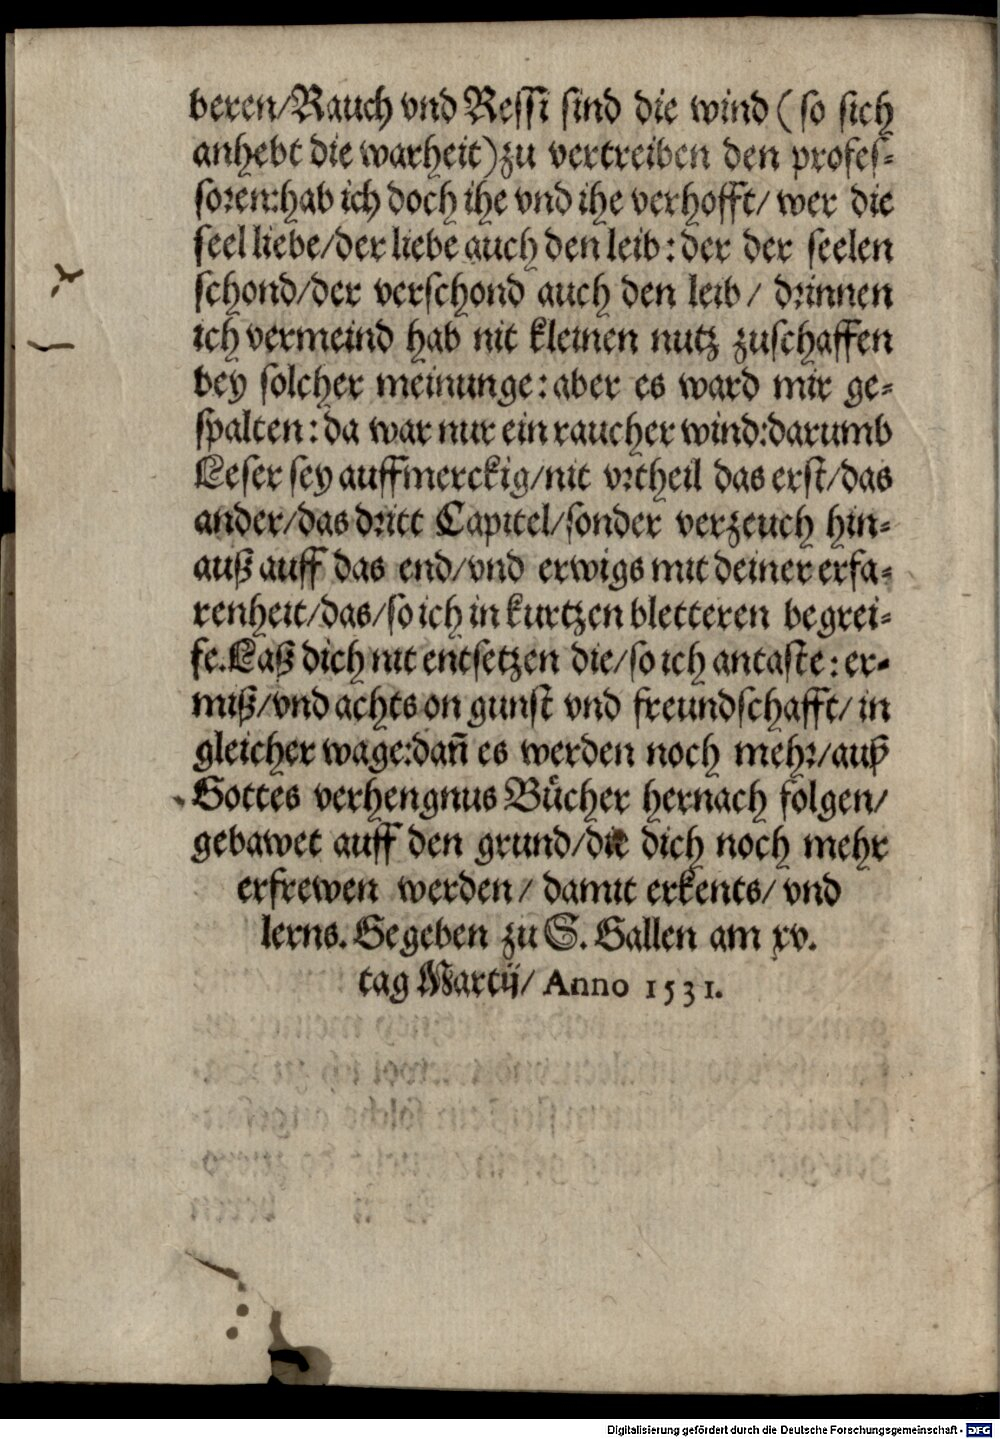 beren/Rauch vnd Ressi sind die wind (so sich
anhebt die warheit) zu vertreiben den profes-
soren: hab ich doch ihe vnd ihe verhofft/ wer die
seel liebe/der liebe auch den leib: der der seelen
schond/der verschond auch den leib/ drinnen
ich vermeind hab nit kleinen nutz zuschaffen
bey solcher meinunge: aber es ward mir ge-
spalten: da war nur ein raucher wind: darumb
Leser sey auffmerckig/nit vrtheil das erst/das
ander/das dritt Capitel/sonder verzeuch hin-
auß auff das end/vnd erwigs mit deiner erfa-
renheit/das/so ich in kurtzen bletteren begrei-
fe. Laß dich nit entsetzen die/so ich antaste: er-
miß/vnd achts on gunst vnd freundschafft/ in
gleicher wage: dañ es werden noch mehr/auß
Gottes verhengnus Bücher hernach folgen/
gebawet auff den grund/die dich noch mehr
erfrewen werden/ damit erkents/ vnd
lerns. Gegeben zu S. Gallen am xv.
tag Martij/ Anno 1531.
Digitalisierung gefördert durch die Deutsche Forschungsgemeinschaft - DFG